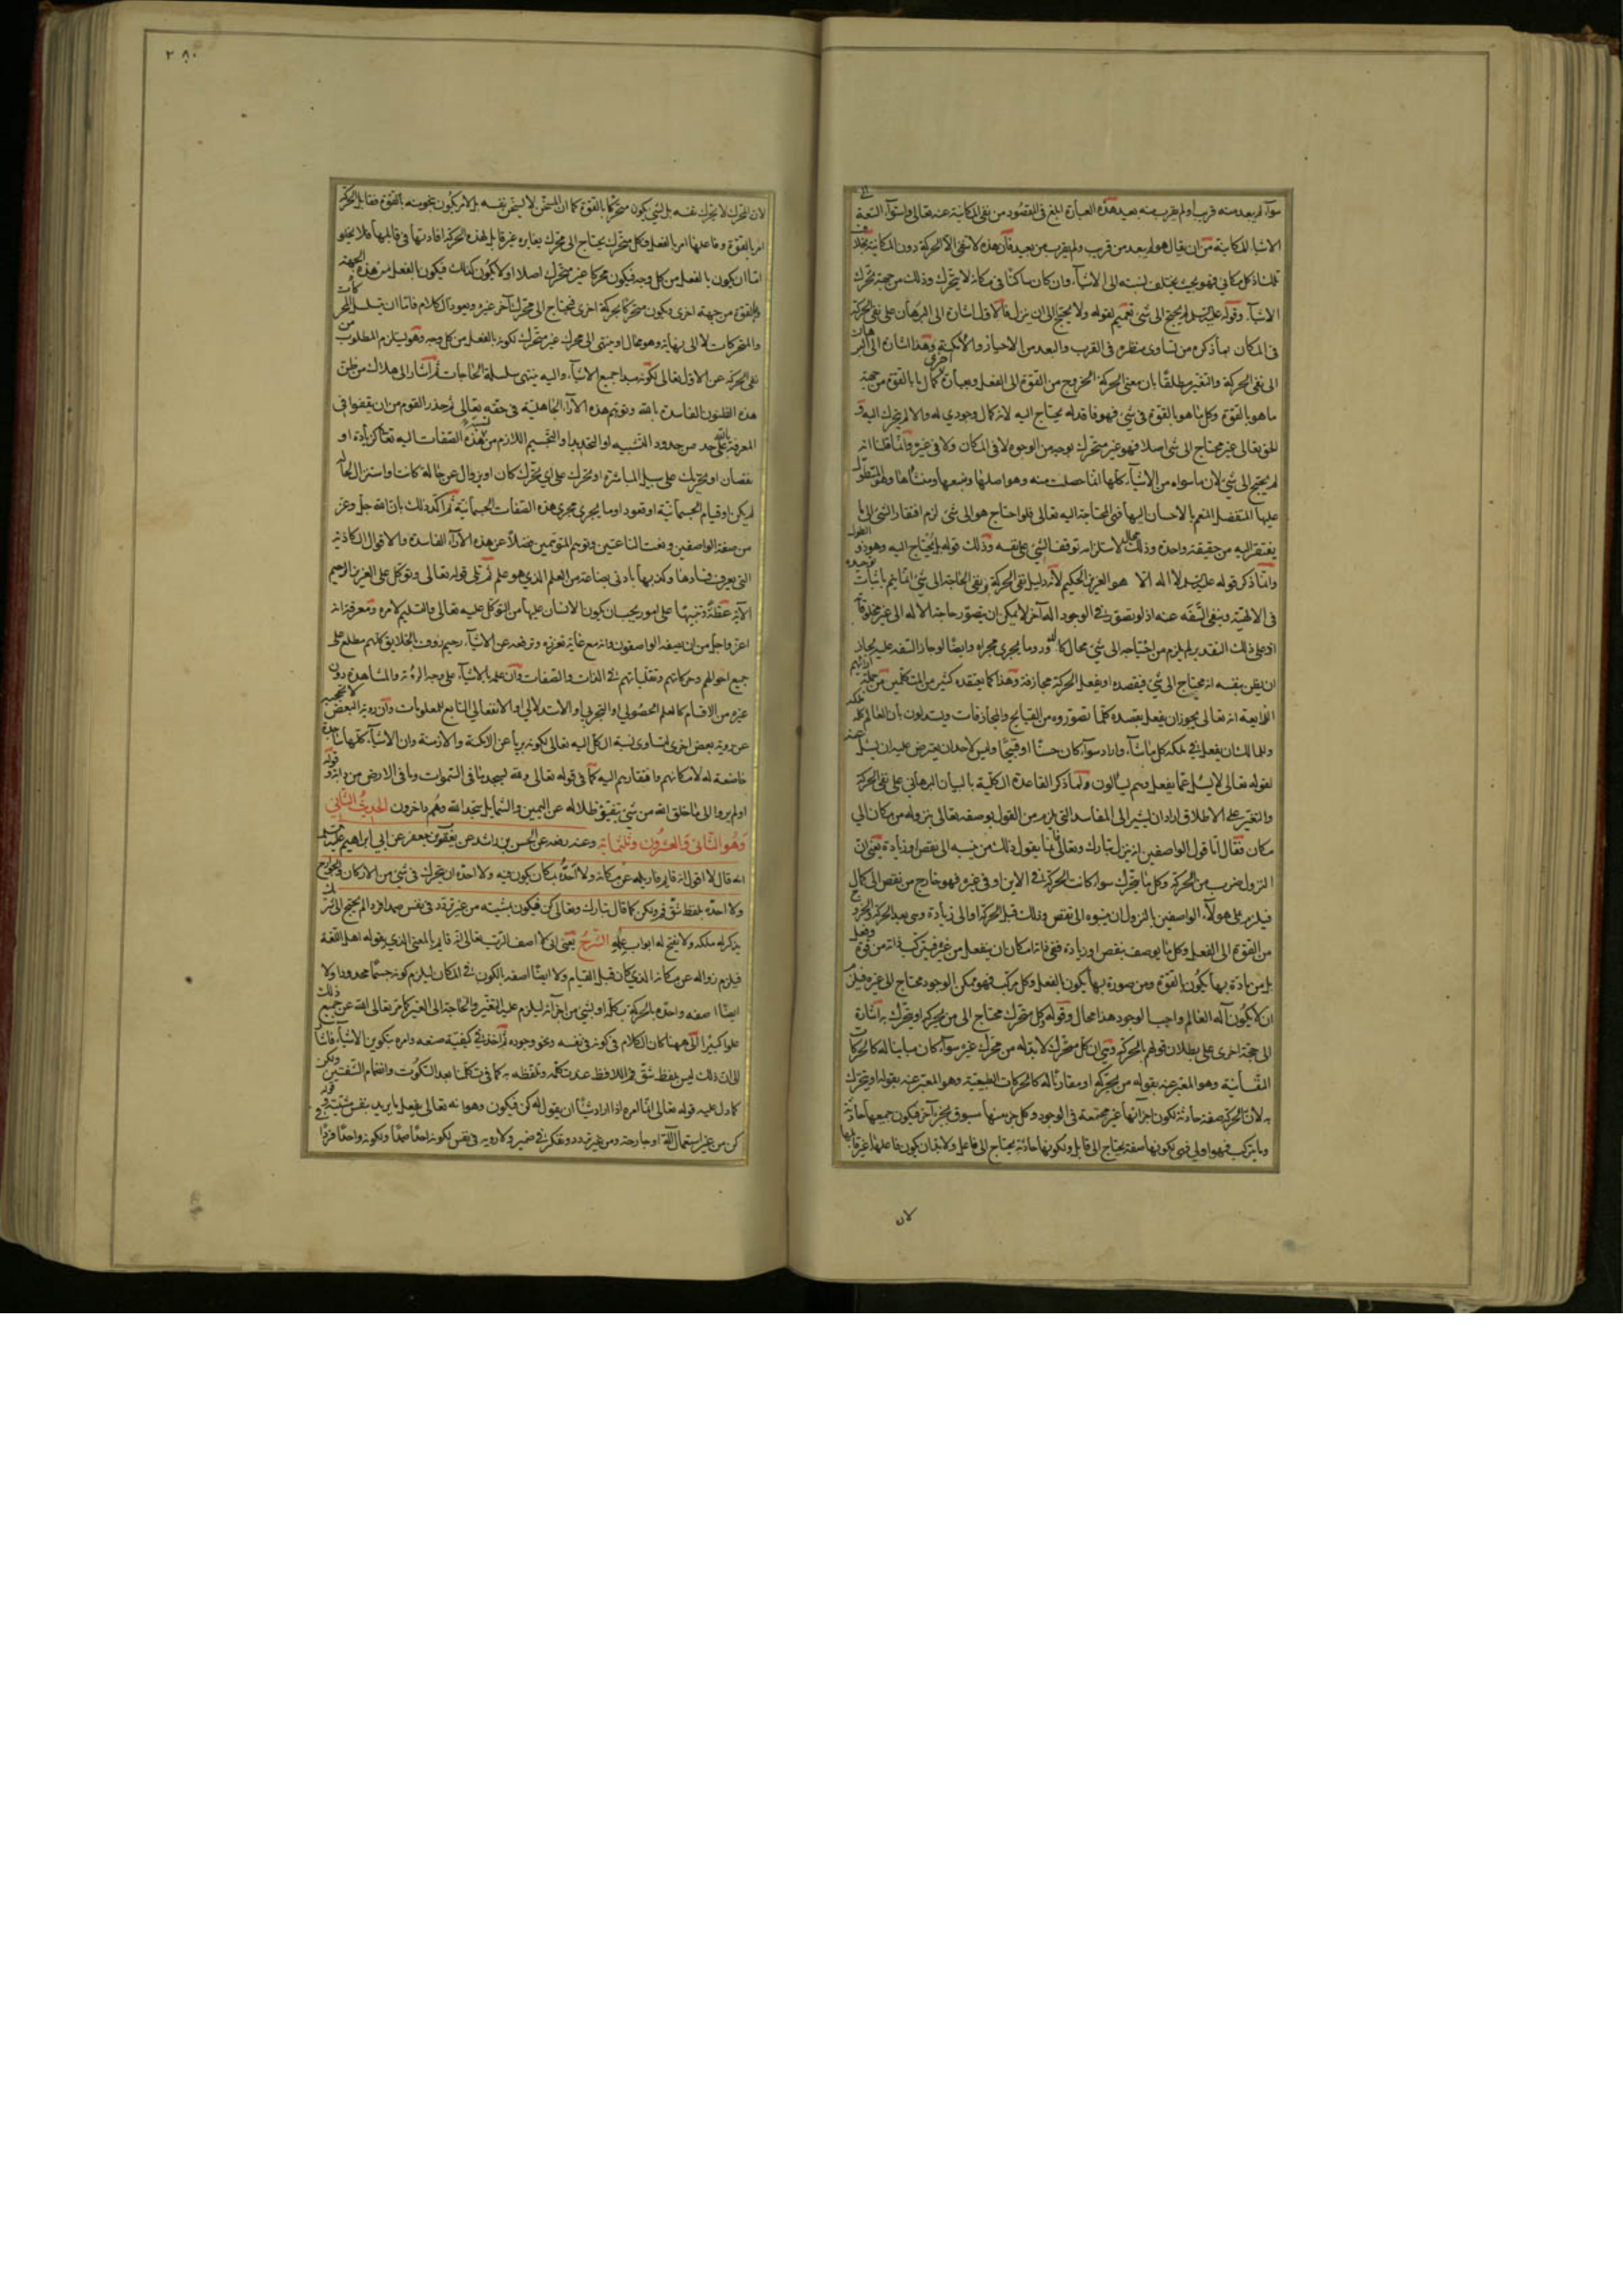 ٢٨٠
سوآء لم يبعد منه قريب ولم يقرب منه بعيد هذه العبارة ابلغ فى المقصود من نفى المكانية عنه تعالى واستوآء النسبة الى
الاشيا المكانية من ان يقال هو لم يبعد من قريب ولم يقرب من بعيد فان هذه لا تنفى الا الحركة دون المكانية بخلاف
تلك اذ كل مكانى فهو بحيث يختلف نسبته الى الاشيآء وان كان ساكنا فى مكانه لا يتحرك وذلك من جهة تحرك
الاشيآء وقوله عليه السلم لم يحتج الى شئ تعميم لقوله ولا يحتاج الى ان ينزل فالاول اشارة الى البرهان على نفى الحركة
فى المكان بما ذكره من تساوى منظره فى القرب والبعد من الاحياز والامكنة وهذا اشارة الى البرهان
الى نفى الحركة والتغير مطلقا بان معنى الحركة الخروج من القوة الى الفعل وبعبارة اخرى كمال ما بالقوة من جهة
ما هو بالقوة وكل ما هو بالقوة فى شئ فهو فاقد له يحتاج اليه لانه كمال وجودي له والا لم يتحرك اليه و
الحق تعالى غير محتاج الى شئ اصلا فهو غير متحرك بوجه من الوجوه لا فى المكان ولا فى غيره وانما قلنا انه
لم يحتج الى شئ لان ما سواه من الاشيآء كلها انما حصلت منه وهو اصلها ومنبعها ومنشأها وهو المتطول
عليها المتفضل المنعم بالاحسان اليها فهى المحتاجة اليه تعالى فلو احتاج هو الى شئ لزم افتقار الشئ الى ما
يفتقر اليه من حقيقة واحدة وذلك محال لاستلزامه توقف الشئ على نفسه وذلك قوله بل يحتاج اليه وهو ذو الطول
وانما ذكر قوله عليه السلم لا اله الا هو العزيز الحكيم لانه دليل نفى الحركة ونفى الحاجة الى شئ انما يتم باثبات توحيده
فى الالهية وبنفى السفه عنه اذ لو تصور فى الوجود اله آخر لا يمكن ان يتصور حاجة الاله الى غير مخلوقه
اذ على ذلك التقدير لم يلزم من احتياجه الى شئ محال كالدور وما يجرى مجراه وايضا لو جاز السفه عليه لجاز
ان يظن بنفسه انه محتاج الى شئ فيقصده او يفعل الحركة مجازفة وهذا كما يعتقده كثير من المتكلمين من جملة آرائهم
الفاسدة انه تعالى يجوز ان يفعل بقصده كلما تصوروه من القبايح والمجازفات ويستدلون بان العالم كله ملكه
وللمالك ان يفعل فى ملكه كل ما شآء واراد سوآء كان حسنا او قبيحا وليس لاحد ان يعترض عليه ان يسئل عنه
لقوله تعالى لا يسئل عما يفعل وهم يسألون ولما ذكر القاعدة الكلية بالبيان البرهانى على نفى الحركة
والتغير على الاطلاق اراد ان يشير الى المفاسد التى يلزم من القول بوصفه تعالى بنزوله من مكان الى
مكان فقال اما قول الواصفين انه ينزل تبارك وتعالى فانما يقول ذلك من ينسبه الى نقص او زيادة يعنى ان
النزول ضرب من الحركة وكل ما يتحرك سوآء كانت الحركة فى الاين او فى غيره فهو خارج من نقص الى كمال
فيلزم على هولآء الواصفين بالنزول ان ينسبوه الى نقص وذلك قبل الحركة او الى زيادة وهى بعد الحركة والخروج
من القوة الى الفعل وكل ما يوصف بنقص او زيادة ففى ذاته امكان ان ينفعل من غيره فيتركب ذاته من قوة وفعل
بل من مادة بها يكون بالقوة ومن صورة بها يكون بالفعل وكل مركب فهو ممكن الوجود محتاج الى غيره فيلزم
ان لا يكون اله العالم واجب الوجود هذا محال وقوله وكل متحرك محتاج الى من يحركه او يتحرك به اشارة
الى حجة اخرى على بطلان قولهم بالحركة وهى ان كل متحرك لا بد له من محرك غيره سوآء كان مباينا له كالحركات
النفسانية وهو المعبر عنه بقوله من يحركه او مقارنا له كالحركات الطبيعية وهو المعبر عنه بقوله او يتحرك
به لان الحركة صفة حادثة لكون اجزائها غير مجتمعة فى الوجود وكل جزء منها مسبوق بجزء آخر فيكون جميعها حادثة
وما يتركب فهو اولى فهى لكونها صفة يحتاج الى قابل ولكونها حادثة يحتاج الى فاعل ولا بد ان يكون فاعلها غير قابلها
لان
لان المحرك لا يحرك نفسه بل لشئ يكون متحركا بالقوة كما ان المسخن لا يسخن نفسه بل لامر يكون سخونته بالقوة فقابل الحركة
امر بالقوة وفاعلها امر بالفعل فكل متحرك يحتاج الى محرك يغايره غير قابل لهذه الحركة افادتها فى قابلها فلا يخلو
اما ان يكون بالفعل من كل وجه فيكون محركا غير متحرك اصلا او لا يكون كذلك فيكون بالفعل من هذه الجهة
وبالقوة من جهة اخرى ويكون متحركا بحركة اخرى فيحتاج الى محرك آخر غيره ويعود الكلام فاما ان تسلسل المحركات
والمتحركات لا الى نهاية وهو محال او ينتهى الى محرك غير متحرك لكونه بالفعل من كل وجه وهو يستلزم المطلوب من
نفى الحركة عن الاول تعالى لكونه مبدا جميع الاشيآء واليه ينتهى سلسلة الحاجات ثم اشار الى هلاك من ظن
هذه الظنون الفاسدة بالله وتوهم هذه الآرآء الجاهلية فى حقه تعالى ثم حذر القوم من ان يقفوا فى
المعرفة بالله على حد من حدود التشبيه او التحديد والتجسيم اللازم من نسبة هذه الصفات اليه تعالى كزيادة او
نقصان او تحريك على سبيل المباشرة او تحرك على اي تحرك كان او زوال عن حالة كانت او استنزال لحالة
لم يكن او قيام الجسمانية او قعود او ما يجرى مجرى هذه الصفات الجسمانية ثم اكد ذلك بان الله جل وعز
من صفة الواصفين ونعت الناعتين وتوهم المتوهمين فضلا عن هذه الآرآء الفاسدة والاقوال الكاذبة
التى يعرف فسادها وكذبها بادنى بضاعة من العلم الذي هو علم ثم تلى قوله تعالى وتوكل على العزيز الرحيم
الآية عظة وتنبيها على امور يجب ان يكون الانسان عليها من التوكل عليه تعالى والتسليم لامره ومعرفة انه
اعز واجل من ان يصفه الواصفون وانه مع غاية تعززه وترفعه عن الاشيآء رحيم رؤف بالخلايق كلهم مطلع على
جميع احوالهم وحركاتهم وتقلباتهم فى الذات والصفات وان علمه بالاشيآء على وجه الرؤية والمشاهدة دون
غيره من الاقسام كالعلم الحصولي او التجربي او الاستدلالي او الانفعالي التابع للمعلومات وان رؤية البعض لا تحجبه
عن رؤية بعض اخرى لتساوى نسبة الكل اليه تعالى لكونه بريا عن الامكنة والازمنة وان الاشيآء كلها ساجدة
خاضعة له لامكانهم وافتقارهم اليه كما فى قوله تعالى ولله يسجد ما فى السموات وما فى الارض من دابة وقوله
اولم يروا الى ما خلق الله من شئ يتفيؤ ظلاله عن اليمين والشمايل سجدا لله وهم داخرون الحديث الثانى
وهو الثانى والعشرون وثلثمائة وعنه رفعه عن الحسن بن راشد عن يعقوب بن جعفر عن ابي ابراهيم عليه السلم
انه قال لا اقول انه قايم فازيله عن مكانه ولا احده بمكان يكون فيه ولا احده ان يتحرك فى شئ من الاركان والجوارح
ولا احده بلفظ شق فم ولكن كما قال تبارك وتعالى كن فيكون بمشيته من غير تردد فى نفس صمدا فردا لم يحتج الى شريك
يذكر له ملكه ولا يفتح له ابواب علمه الشرح يعنى انى لا اصف الرب تعالى انه قايم بالمعنى الذي يقوله اهل اللغة
فيلزم زواله عن مكانه الذي كان قبل القيام ولا ايضا اصفه بالكون فى المكان ليلزم كونه جسما محدودا ولا
ايضا اصفه واحده بالحركة بكله او بشئ من اجزآئه ليلزم عليه التغير والحاجة الى الغير كما مر تعالى الله عن جميع ذلك
علوا كبيرا الى ههنا كان الكلام فى كونه فى نفسه ونحو وجوده ثم اخذ فى كيفية صنعه وامره بتكوين الاشيآء فاشار
الى ان ذلك ليس بلفظ شق فم اللافظ عند تكلمه وتلفظه به كما فى تكلمنا بعد السكوت وانضمام الشفتين ولكن
كما دل عليه قوله تعالى انما امره اذا اراد شيئا ان يقول له كن فيكون وهو انه تعالى يفعل ما يريد بنفس مشيته وقوله
كن من غير استعمال آلة او جارحة ومن غير تردد وتفكر فى ضمير ولا روية فى نفس لكونه احدا صمدا ولكونه واحدا فردا